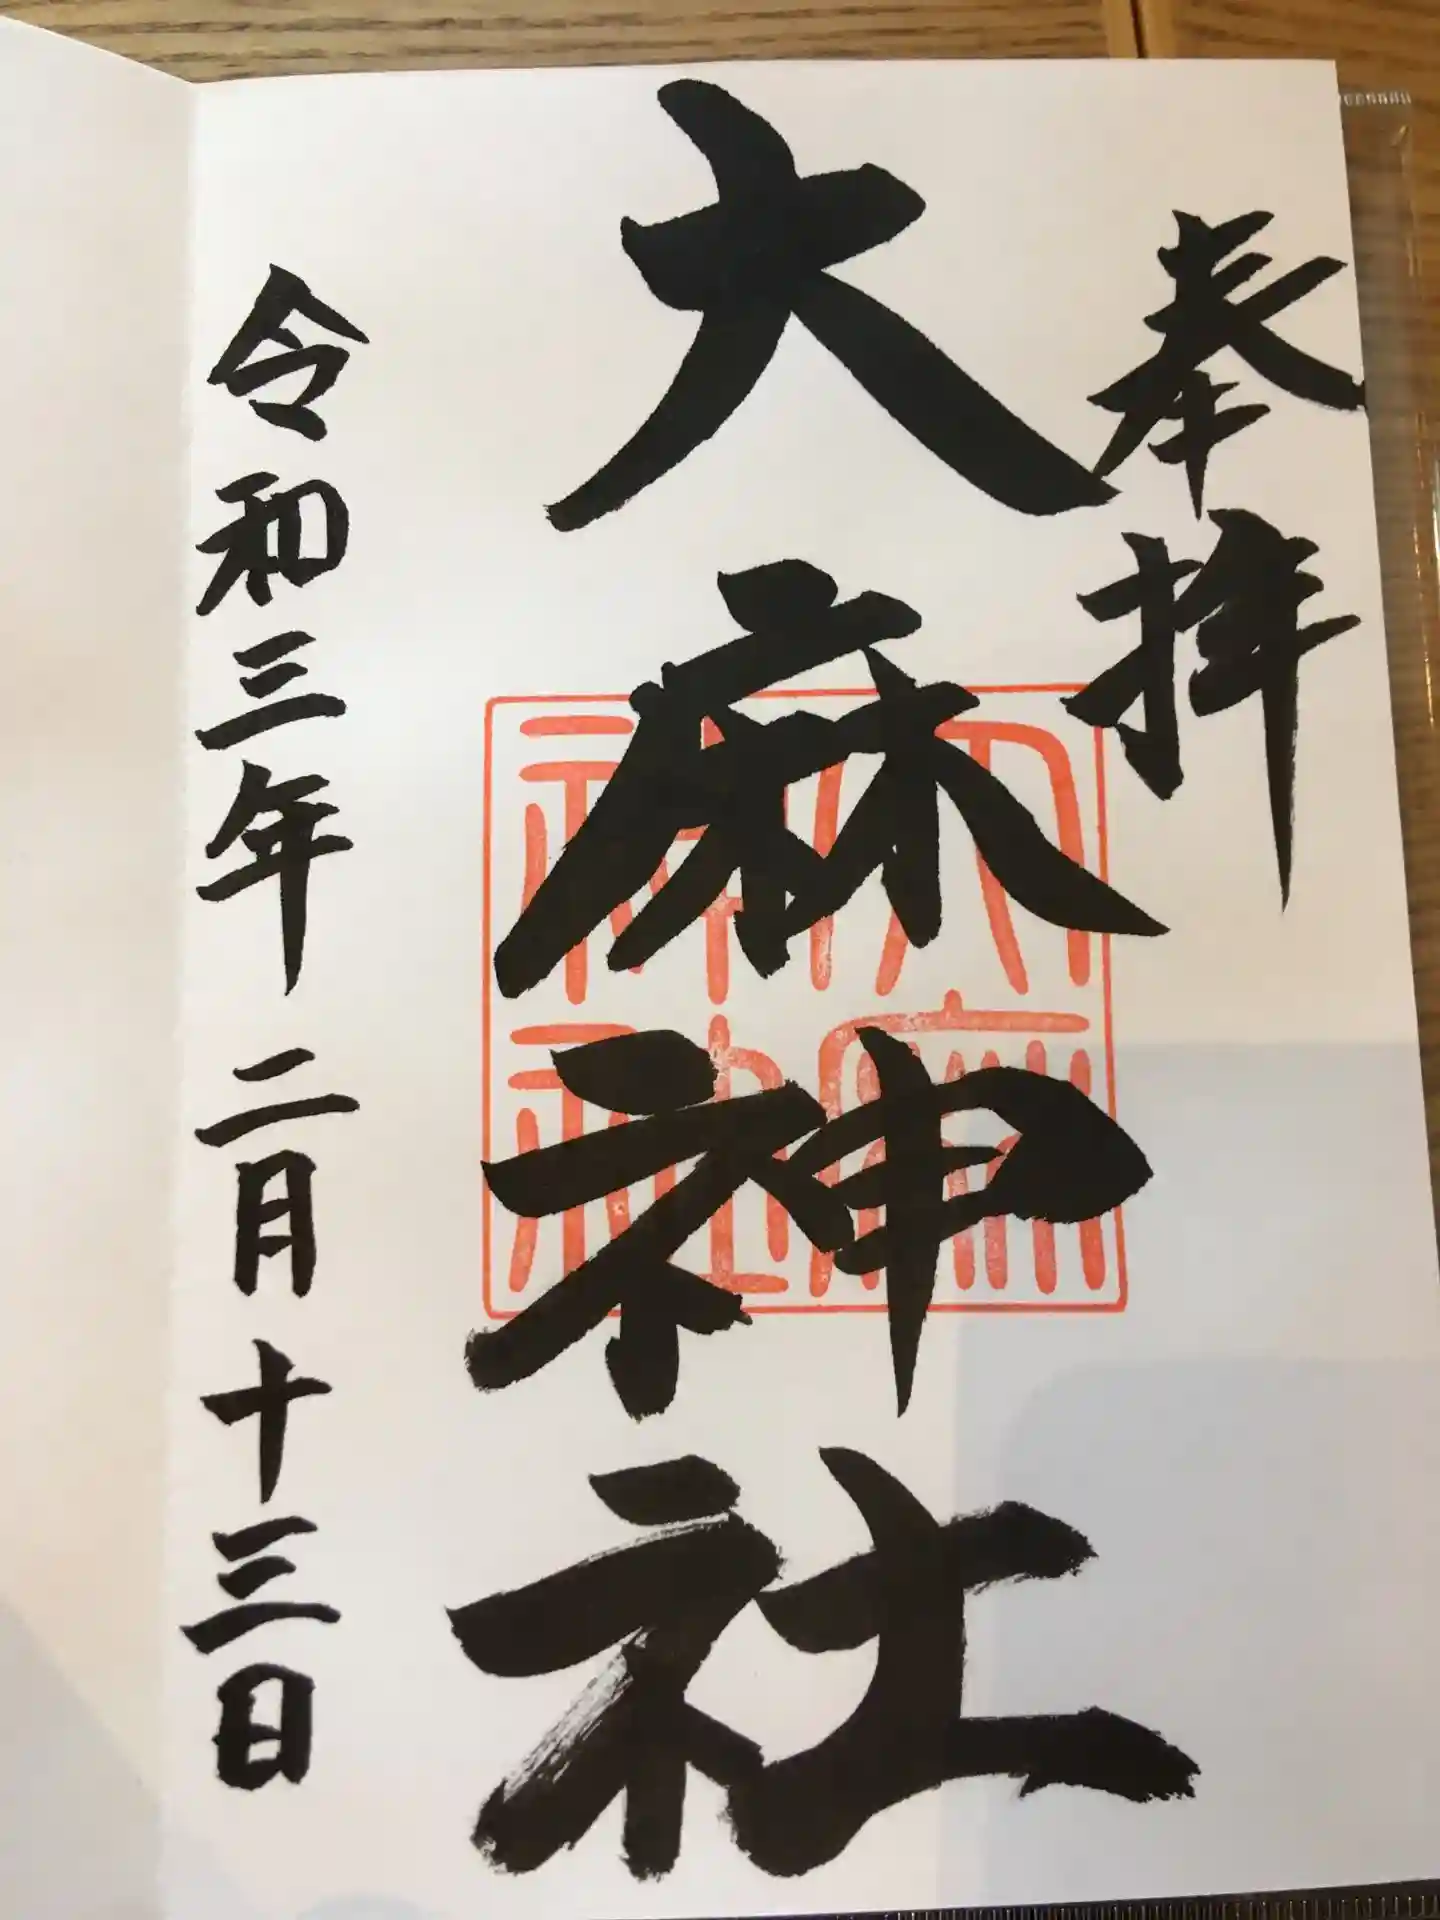 奉拝
大麻神社
大麻神社
令和三年二月十三日